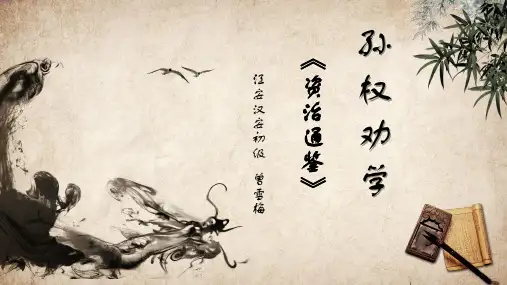 孙权劝学
《资治通鉴》
江安汉安初级 曾雪梅